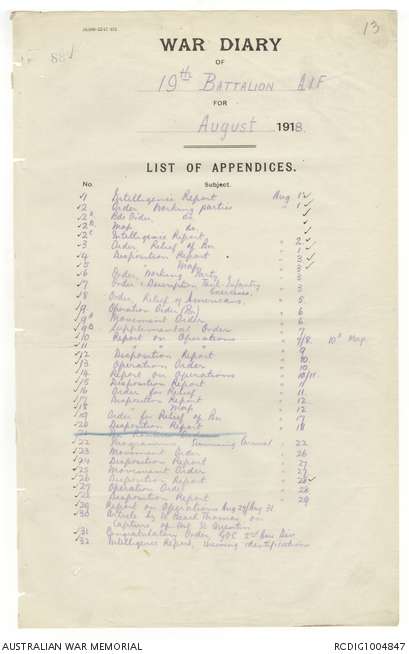 13
WAR DIARY
OF
19th BATTALION AIF
FOR
August 1918.
LIST OF APPENDICES.
No. Subject.
1 Intelligence Report Aug 1
2 Order Working parties " 1
2A Bde Order do
2B Map do
2C Intelligence Report " 2
3 Order Relief of Bn " 1
4 Disposition Report " 3
5 " Map " 3
6 Order Working Party " 3
7 Order & Description Tank Infantry Exercises " 3
8 Order Relief of Americans " 5
9 Operation Order (Bn) " 6
9A Movement Order " 6
9B Supplemental Order " 7
10 Report on Operations " 7/8 10A Map
11 " " " 9
12 Disposition Report " 10
13 Operation Order " 10
14 Report on Operations " 10/11
15 Disposition Report " 11
16 Order for Relief " 11
17 Disposition Report " 12
18 " Map " 12
19 Order for Relief of Bn " 17
20 Disposition Report " 18
22 Programme Swimming Carnival " 22
23 Movement Order " 26
24 Disposition Report " 27
25 Movement Order " 27
26 Disposition Report " 28
27 Operation Order " 28
28 Disposition Report " 29
29 Report on Operations Aug 29/Aug 31
30 Article by W Beach Thomas on
Capture of Mt St Quentin
31 Congratulatory Order GOC 2nd Aus Div
32 Intelligence Report, Unit Identification
AUSTRALIAN WAR MEMORIAL
RCDIG1004847